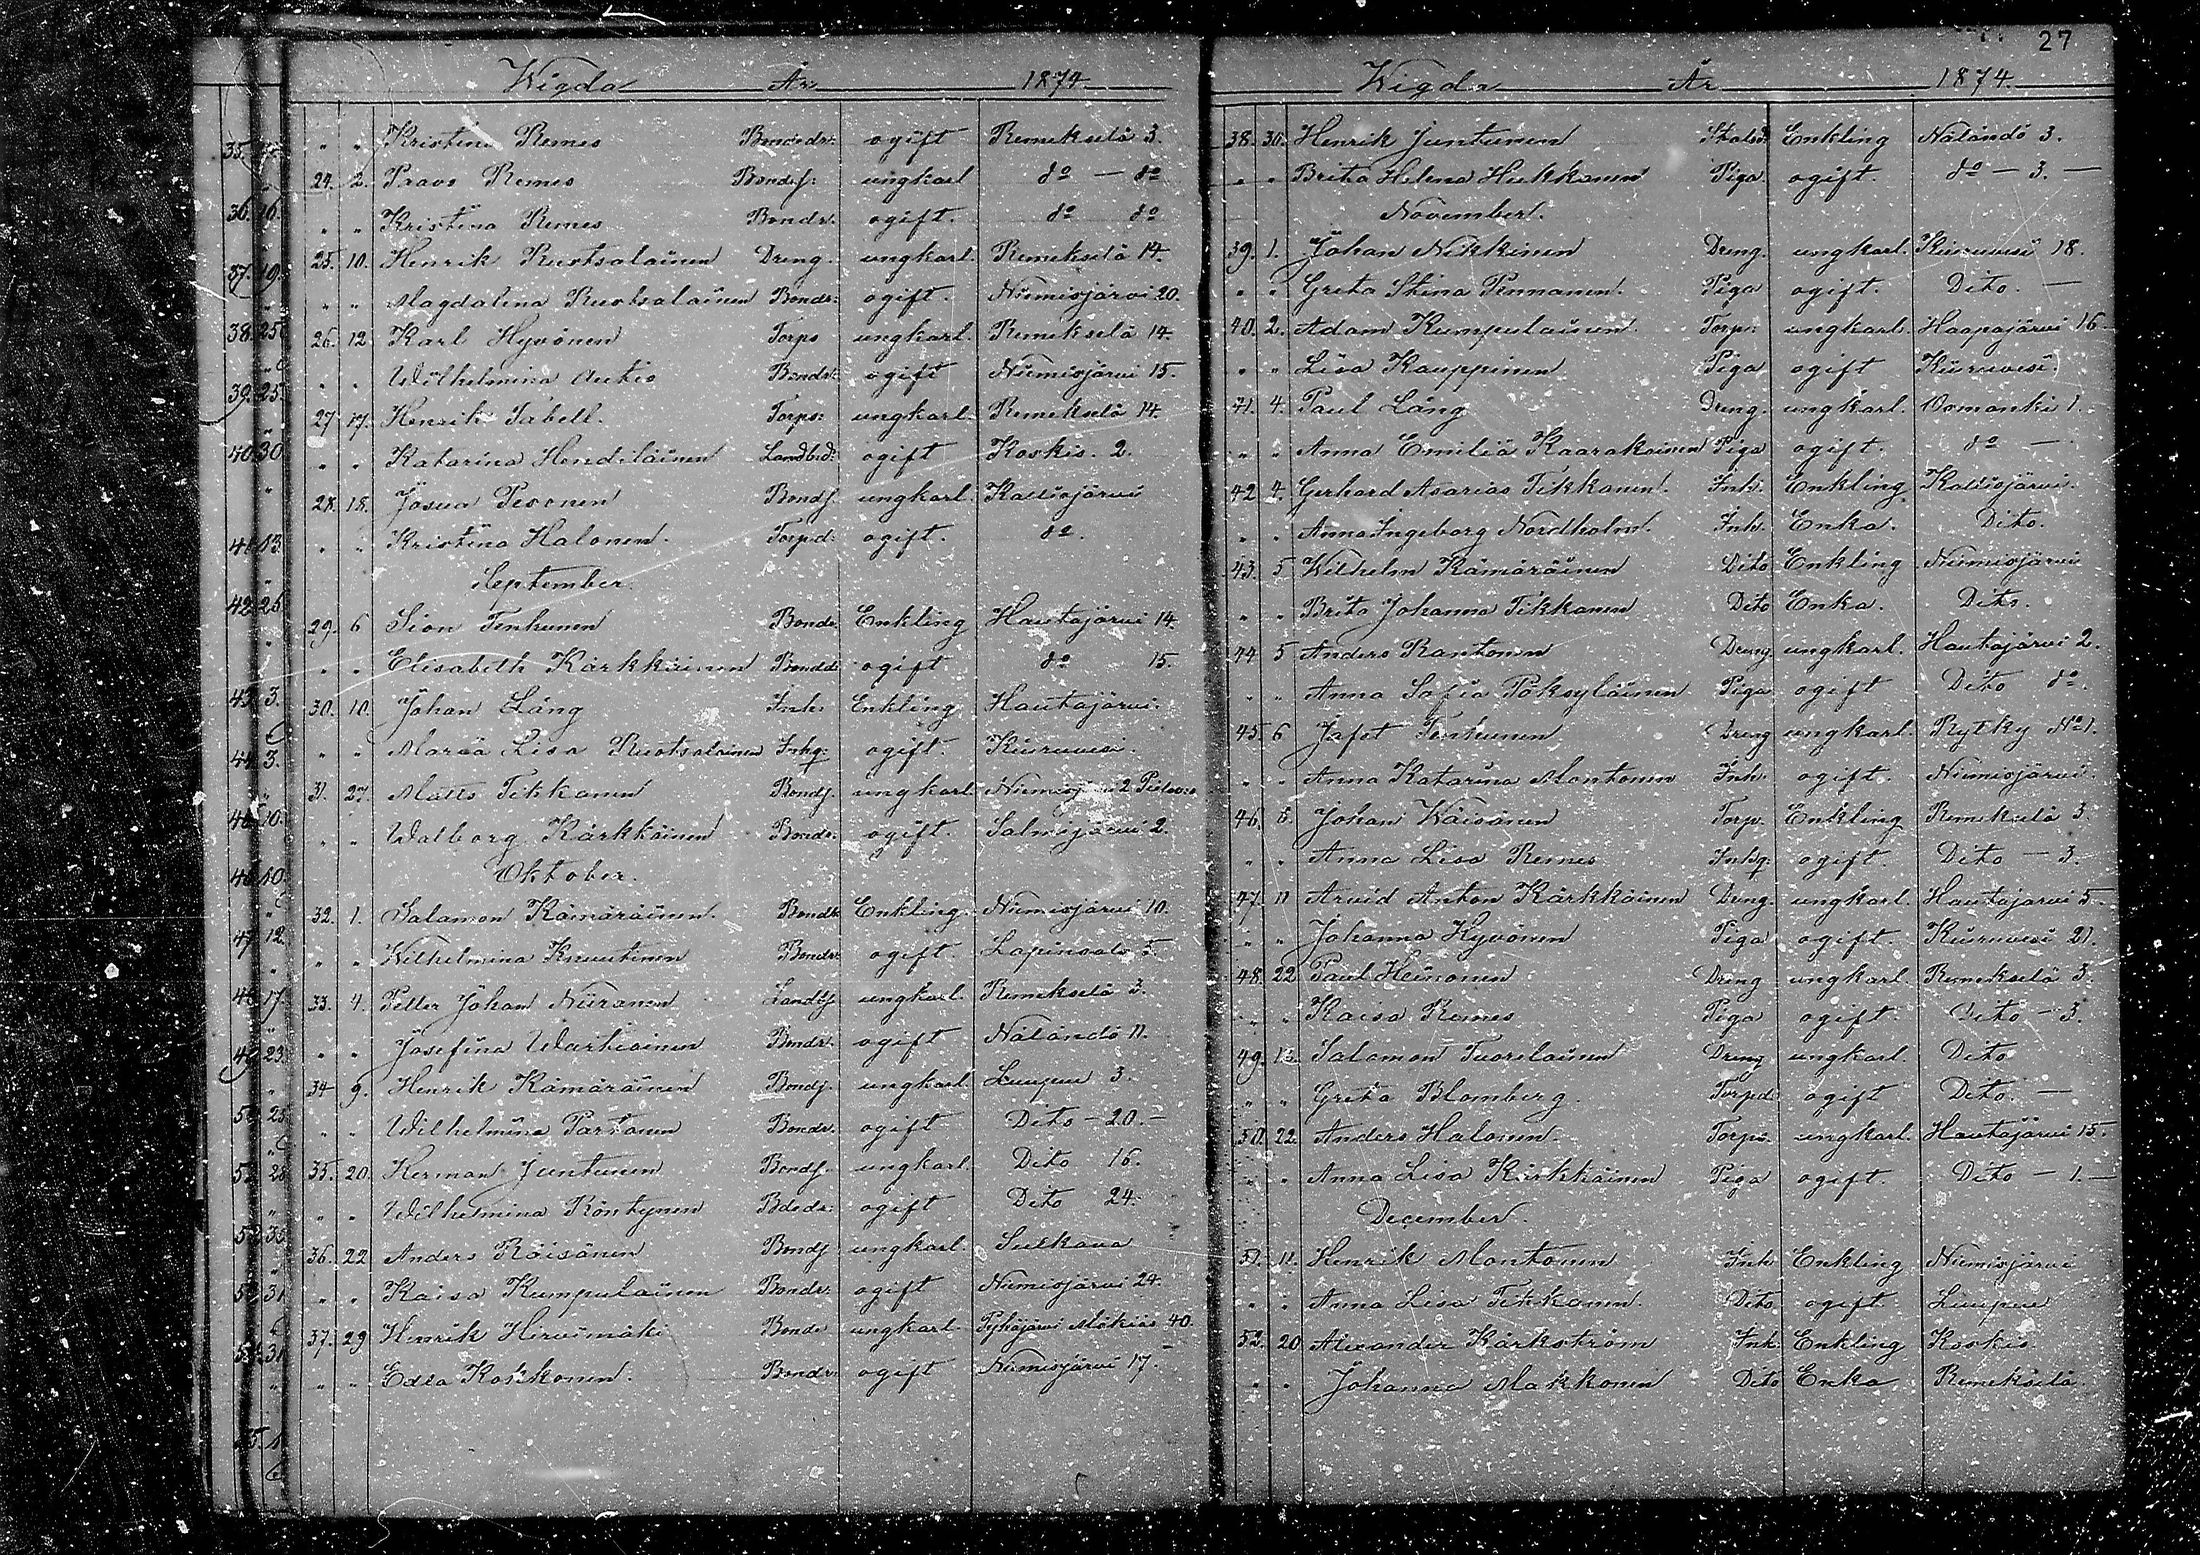 Wigda År 1874.
" " Kristina Remes Bondedr. ogift Remekselä 3.
24. 2. Paavo Remes Bondes. ungkarl do — do
" " Kristina Remes Bondr. ogift. do do
25. 10. Henrik Ruotsalainen Dreng. ungkarl. Remekselä 14.
" " Magdalena Ruotsalainen Bondr. ogift. Niemisjärvi 20.
26. 12. Karl Hyvönen Torps ungkarl. Remekselä 14.
" " Wilhelmina Autio Bondr. ogift Niemisjärvi 15.
27. 17. Henrik Tabell. Torps: ungkarl. Remekselä 14.
" " Katarina Hendiläinen Landbd: ogift Koskis. 2.
28. 18. Josua Pesonen Bondf. ungkarl. Kalliojärvi
" " Kristina Halonen. Torpd: ogift. do.
September.
29. 6 Sion Tenhunen Bonde. Enkling Hautajärvi 14.
" " Elisabeth Kärkkäinen Bondd: ogift do 15.
30. 10. Johan Lång Inh: Enkling Hautajärvi.
" " Maria Lisa Ruotsalainen Inhq: ogift Kiuruvesi.
31. 27. Matts Tikkanen Bondf. ungkarl. Niemisjärvi 2
" " Walborg Kärkkäinen Bondr. ogift. Salmijärvi 2.
Oktober.
32. 1. Salamon Kämäräinen. Bonde Enkling. Niemisjärvi 10.
" " Wilhelmina Knuutinen Bondr. ogift. Lapinsalo 5.
33. 4. Petter Johan Niiranen Landbf. ungkarl. Remekselä 3.
" " Josefina Wartiainen Bondr. ogift Näläntö 11.
34 9. Henrik Kämäräinen Bondf. ungkarl. Luupuu 3.
" " Wilhelmina Partanen Bondr. ogift Dito - 20. -
35. 20. Herman Juntunen Bondf. ungkarl. Dito 16.
" " Wilhelmina Röntynen Bdedr: ogift Dito 24.
36. 22 Anders Räisänen Bondf ungkarl. Sulkava
" " Kaisa Kumpulainen Bondr. ogift Niemisjärvi 24.
37. 29 Henrik Hirvimäki Bonde ungkarl. Pyhäjärvi 40.
" " Edla Koskkonen. Bondr. ogift Niemisjärvi 17.
27
Wigda År 1874.
38. 30. Henrik Juntunen Enkling Näläntö 3.
" " Brita Helena Hukkanen Piga ogift. do — 3. —
November.
39. 1. Johan Nikkinen Dreng. ungkarl. Kiuruvesi 18.
" " Greta Stina Pennanen. Piga ogift. Dito. —
40. 2. Adam Kumpulainen. Torp: ungkarl. Haapajärvi 16.
" " Lisa Kauppinen Piga ogift Kiuruvesi.
41. 4. Paul Lång Dreng. ungkarl. Osmanki 1.
" " Anna Emiliä Kaarakainen Piga ogift. do —
42 4. Gerhard Asarias Tikkanen. Inh. Enkling. Kalliojärvi.
" " Anna Ingeborg Nordholm. Inh. Enka. Dito.
43. 5 Wilhelm Kämäräinen Dito Enkling Niemisjärvi
" " Brita Johanna Tikkanen Dito Enka. Dito.
44 5 Anders Rantonen Dreng ungkarl. Hautajärvi 2.
" " Anna Sofia Pöksyläinen Piga ogift Dito do.
45. 6 Jafet Tenhunen Dreng ungkarl. Rytky No 1.
" " Anna Katarina Mantonen Inh. ogift. Niemisjärvi.
46. 8. Johan Wäisänen Torp. Enkling Remekselä 3.
" " Anna Lisa Remes Inhq. ogift. Dito — 3.
47. 11 Arvid Anton Kärkkäinen Dreng. ungkarl. Hautajärvi 5.
" " Johanna Hyvönen Piga ogift. Kiuruvesi 21.
48. 22 Paul Heinonen Dreng ungkarl. Remekselä 3.
" " Kaisa Remes Piga ogift. Dito — 3.
49. Salamon Tuorilainen Dreng ungkarl. Dito
" " Greta Blomberg. Torpd. ogift Dito. —
50. 22. Anders Halonen. Torps. ungkarl. Hautajärvi 15.
" " Anna Lisa Kärkkäinen Piga ogift. Dito — 1. —
December.
51. 11. Henrik Mantonen Inh Enkling Niemisjärvi
" " Anna Lisa Tikkanen. Dito ogift Luupuu
52. 20 Alexander Kärkström Inh. Enkling Koskis.
" " Johanna Makkonen Dito Enka Remekselä
35.
36. 16.
37. 19.
38. 25
39. 25.
40 30
41 13.
42. 25
43 3.
44 3.
10.
10.
47 12.
17.
49 23.